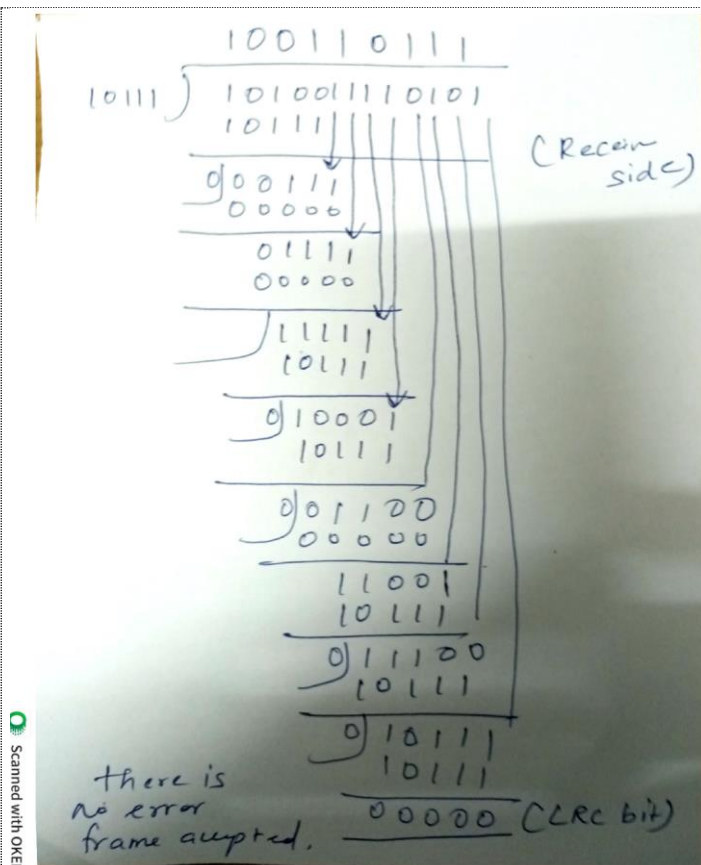 100110111
10111 ) 1010011110101
10111
(Receive side)
0 00111
00000
01111
00000
11111
10111
0 10001
10111
0 01100
00000
11001
10111
0 11100
10111
0 10111
10111
00000 (CRC bit)
there is
no error
frame accepted.
Scanned with OKE